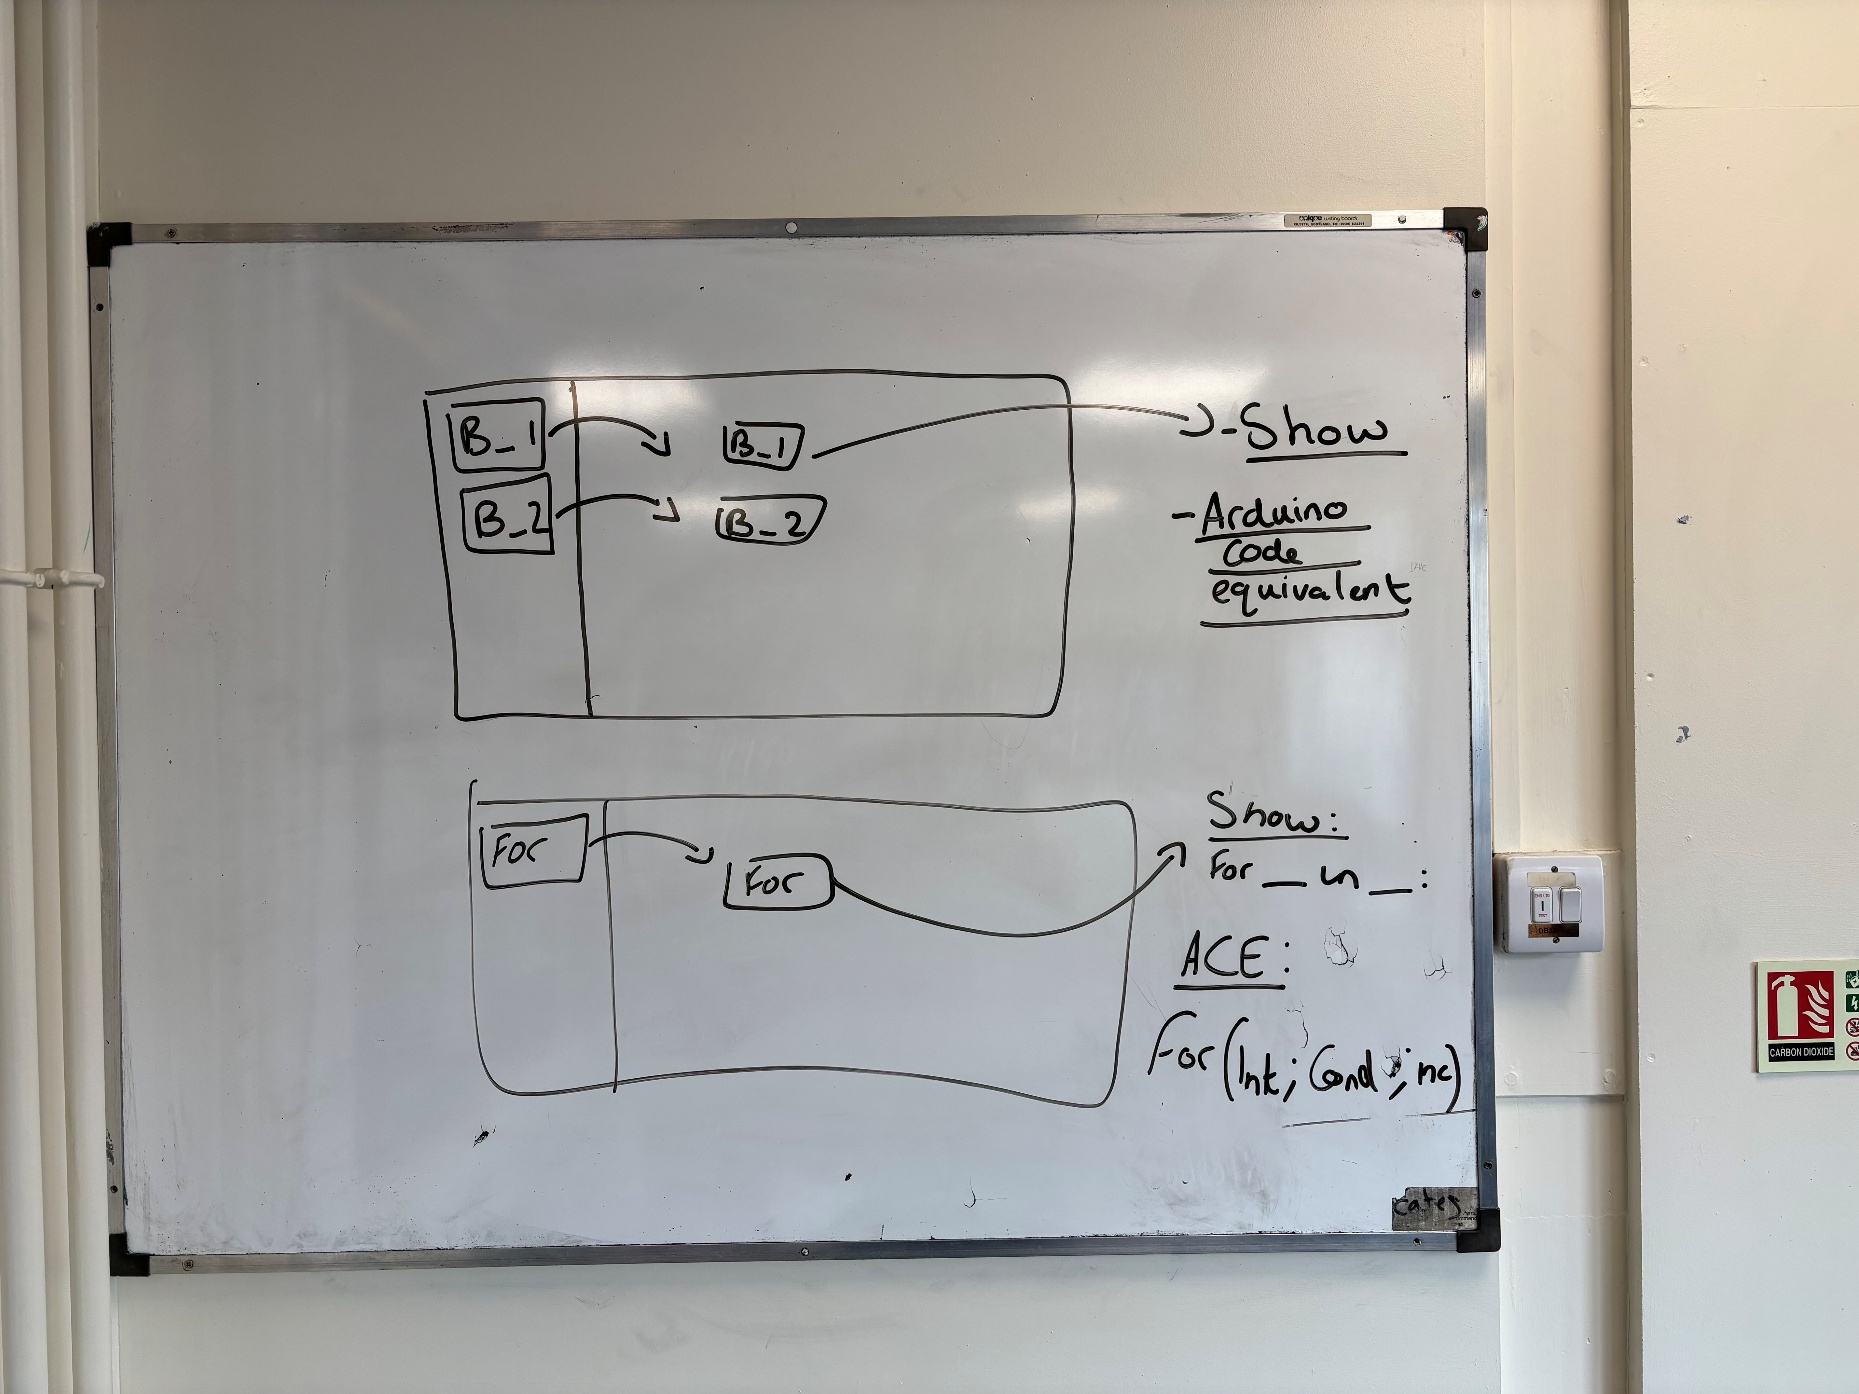 B_1
B_1
-Show
B_2
B_2
-Arduino
code
equivalent
For
For
Show:
For __ in __:
ACE:
For (Int; Cond; inc)
cates
CARBON DIOXIDE